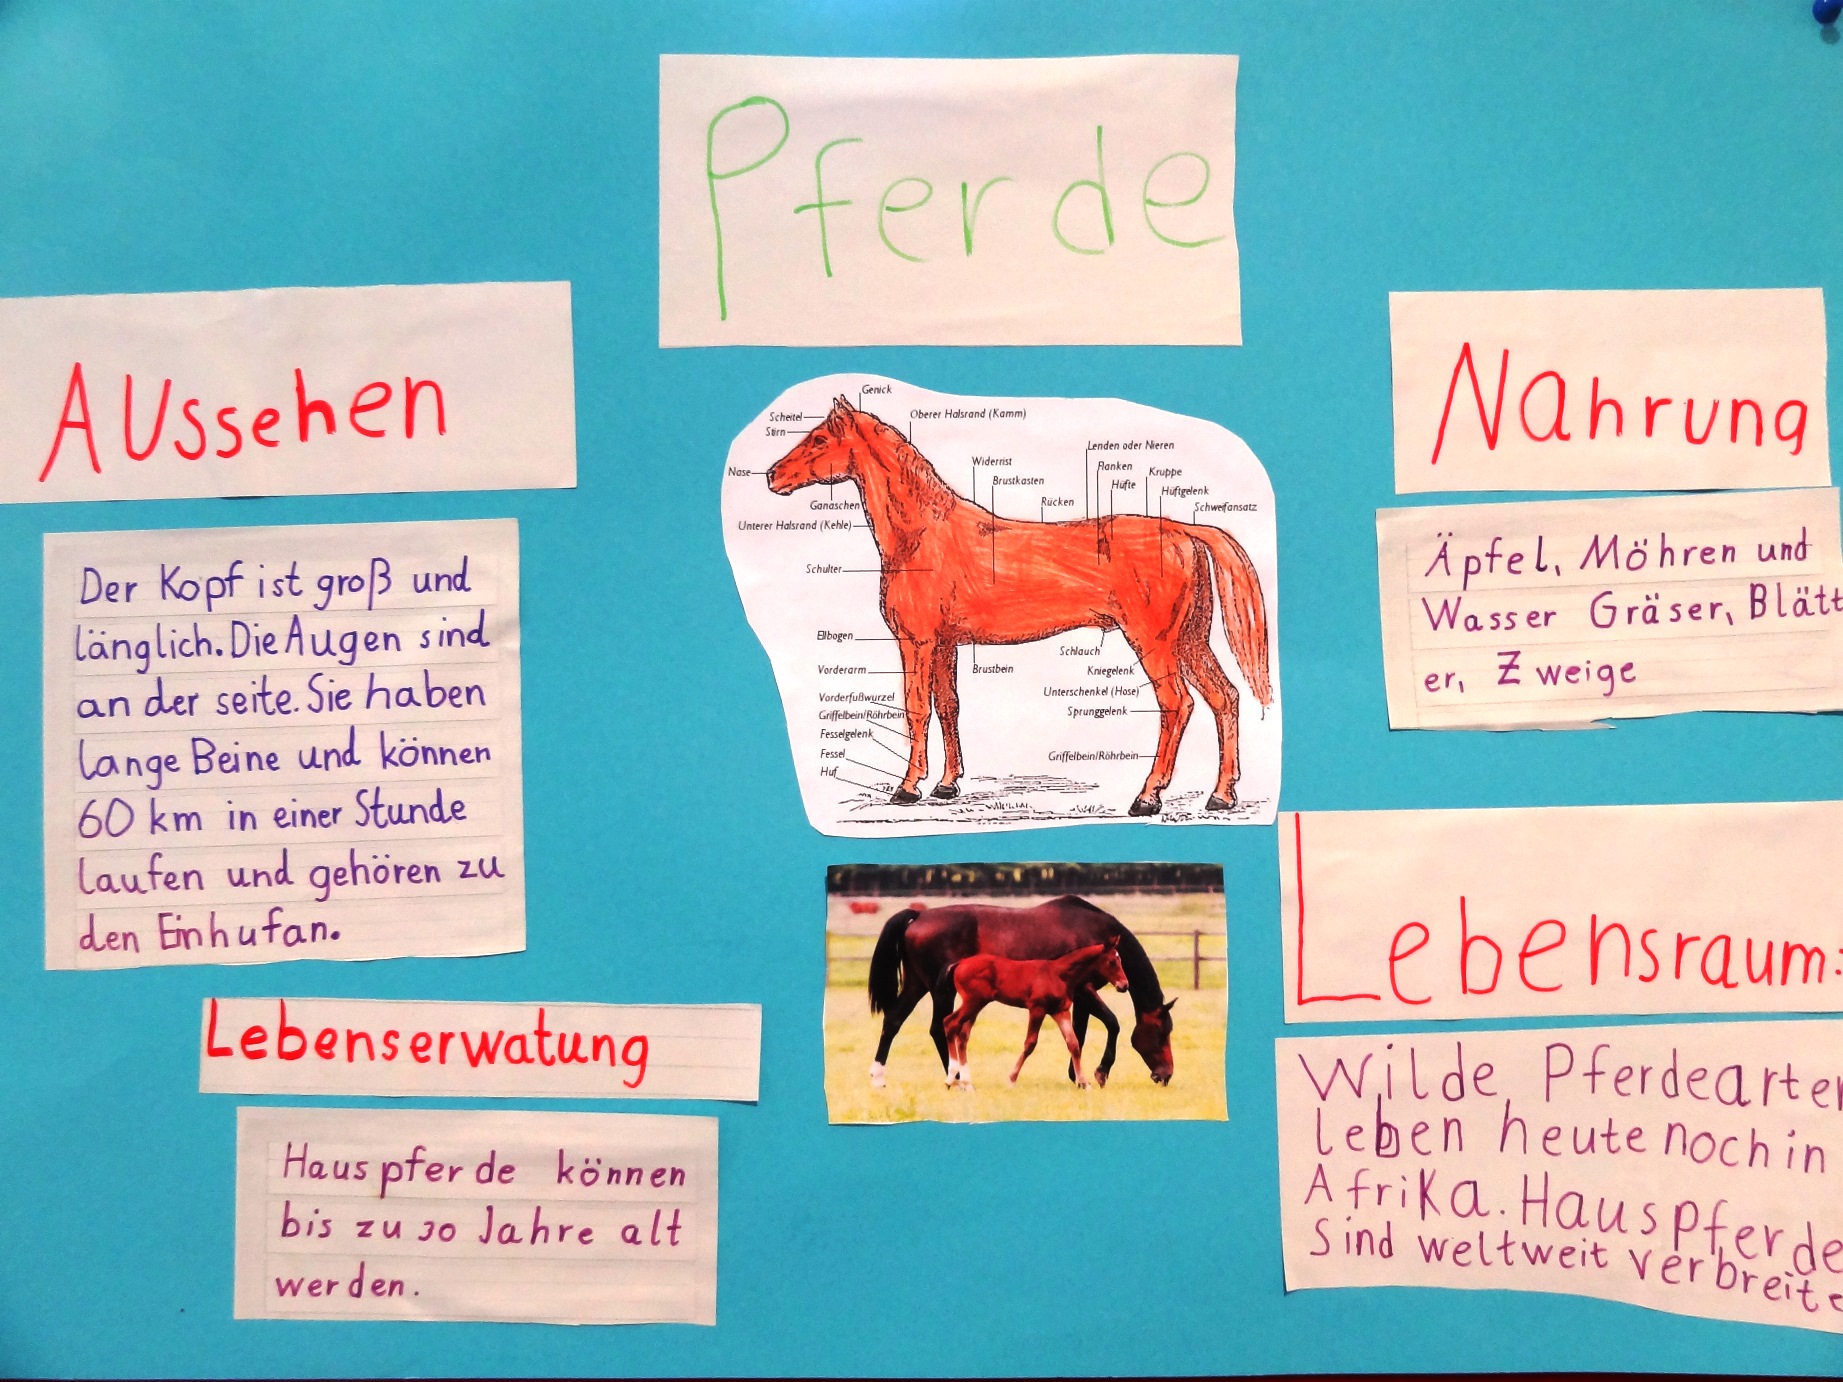 Pferde
Aussehen
Der Kopf ist groß und
länglich. Die Augen sind
an der seite. Sie haben
lange Beine und können
60 km in einer Stunde
laufen und gehören zu
den Einhufan.
Lebenserwatung
Hauspferde können
bis zu 30 Jahre alt
werden.
Genick
Scheitel
Oberer Halsrand (Kamm)
Stirn
Nase
Ganaschen
Unterer Halsrand (Kehle)
Schulter
Ellbogen
Vorderarm
Vorderfußwurzel
Griffelbein/Röhrbein
Fesselgelenk
Fessel
Huf
Widerrist
Brustkasten
Rücken
Lenden oder Nieren
Flanken
Hüfte
Kruppe
Hüftgelenk
Schweifansatz
Brustbein
Schlauch
Kniegelenk
Unterschenkel (Hose)
Sprunggelenk
Griffelbein/Röhrbein
Nahrung
Äpfel, Möhren und
Wasser Gräser, Blätt
er, Zweige
Lebensraum:
Wilde Pferdearten
leben heute noch in
Afrika. Hauspferde
Sind weltweit verbreite